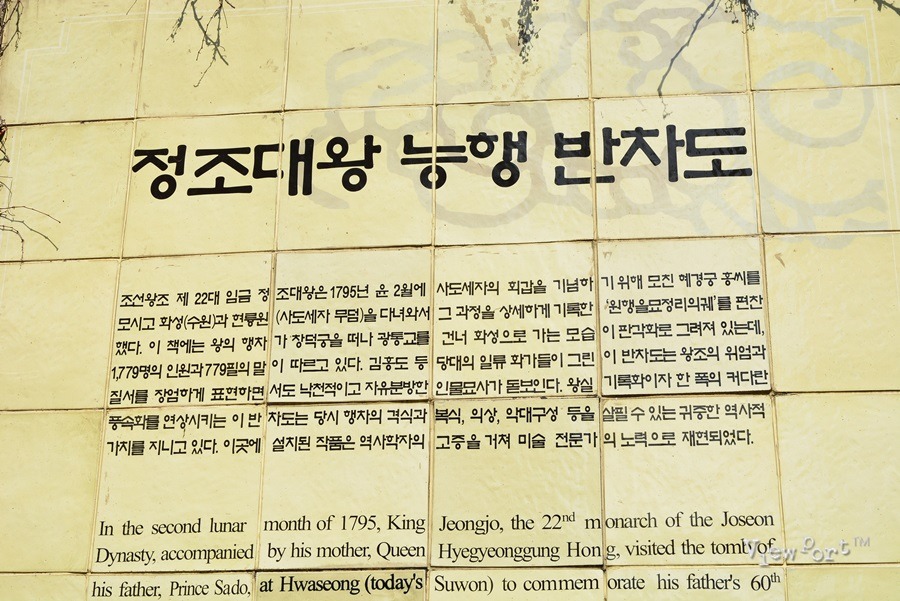 정조대왕 능행 반차도
조선왕조 제 22대 임금 정조대왕은 1795년 윤 2월에 사도세자의 회갑을 기념하기 위해 모친 혜경궁 홍씨를
모시고 화성(수원)과 현륭원(사도세자 무덤)을 다녀와서 그 과정을 상세하게 기록한 '원행을묘정리의궤'를 편찬
했다. 이 책에는 왕의 행차가 창덕궁을 떠나 광통교를 건너 화성으로 가는 모습이 판각화로 그려져 있는데,
1,779명의 인원과 779필의 말이 따르고 있다. 김홍도 등 당대의 일류 화가들이 그린 이 반차도는 왕조의 위엄과
질서를 장엄하게 표현하면서도 낙천적이고 자유분방한 인물묘사가 돋보인다. 왕실 기록화이자 한 폭의 커다란
풍속화를 연상시키는 이 반차도는 당시 행차의 격식과 복식, 의상, 악대구성 등을 살필 수 있는 귀중한 역사적
가치를 지니고 있다. 이곳에 설치된 작품은 역사학자의 고증을 거쳐 미술 전문가의 노력으로 재현되었다.
In the second lunar month of 1795, King Jeongjo, the 22nd monarch of the Joseon
Dynasty, accompanied by his mother, Queen Hyegyeonggung Hong, visited the tomb of
his father, Prince Sado, at Hwaseong (today's Suwon) to commemorate his father's 60th
viewport™